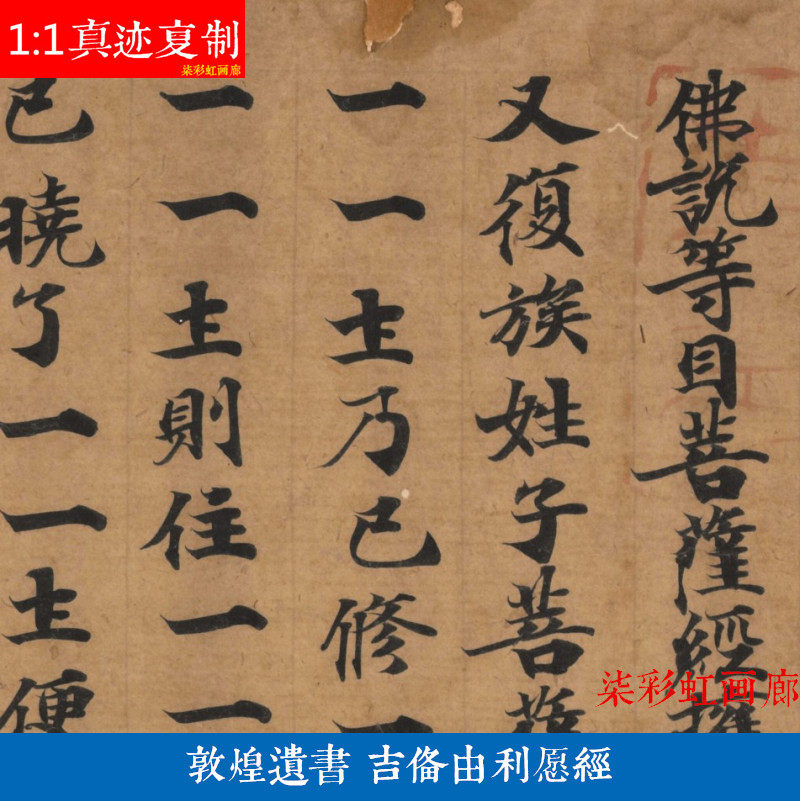 1:1真迹复制
柒彩虹画廊
佛說等目菩薩經
又復族姓子菩薩
一一主乃已修一
一一主則住一一
已曉了一一主便
柒彩虹画廊
敦煌遺書 吉俻由利愿經